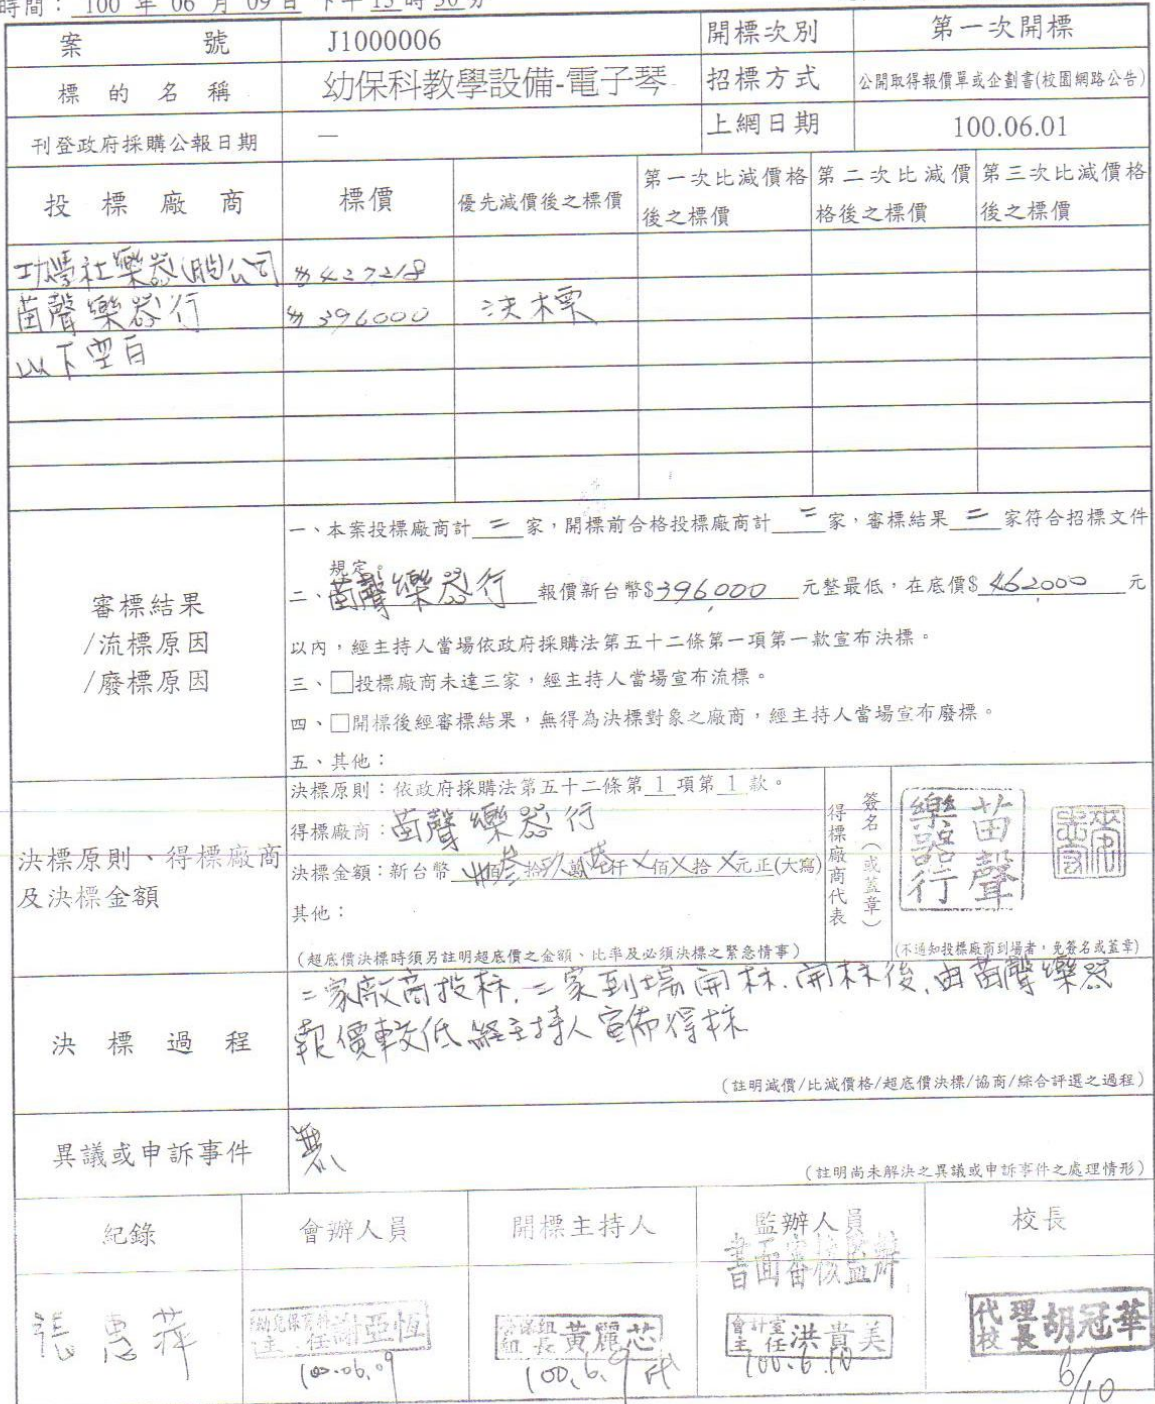 時間： 100 年 06 月 09 日 下午 15 時 30 分
案 號 J1000006 開標次別 第一次開標
標的名稱 幼保科教學設備-電子琴 招標方式 公開取得報價單或企劃書(校園網路公告)
刊登政府採購公報日期 — 上網日期 100.06.01
投標廠商 標價 優先減價後之標價 第一次比減價格後之標價 第二次比減價格後之標價 第三次比減價格後之標價
功學社樂器(股)公司 $427218
苗聲樂器行 $396000 決標
以下空白
審標結果
/流標原因
/廢標原因
一、本案投標廠商計 二 家，開標前合格投標廠商計 二 家，審標結果 二 家符合招標文件
規定。
二、苗聲樂器行 報價新台幣$396,000 元整最低，在底價$ 462,000 元
以內，經主持人當場依政府採購法第五十二條第一項第一款宣布決標。
三、□投標廠商未達三家，經主持人當場宣布流標。
四、□開標後經審標結果，無得為決標對象之廠商，經主持人當場宣布廢標。
五、其他：
決標原則、得標廠商
及決標金額
決標原則：依政府採購法第五十二條第 1 項第 1 款。
得標廠商：苗聲樂器行
決標金額：新台幣 叁拾玖萬陸仟X佰X拾X元正(大寫)
其他：
(超底價決標時須另註明超底價之金額、比率及必須決標之緊急情事)
得標廠商代表
簽名（或蓋章）
苗聲
樂器行
(不通知投標廠商到場者，免簽名或蓋章)
決標過程
二家廠商投标,二家到場開标.開标後,由苗聲樂器
報價較低 經主持人宣佈得标
(註明減價/比減價格/超底價決標/協商/綜合評選之過程)
異議或申訴事件 無
(註明尚未解決之異議或申訴事件之處理情形)
紀錄 會辦人員 開標主持人 監辦人員 校長
書面審核監辦
張惠萍
幼兒保育科主任 謝亞恆
100.06.09
組長 黃麗芯
100.6.9 代
會計室主任 洪貴美
100.6.10
代理校長 胡冠華
6/10